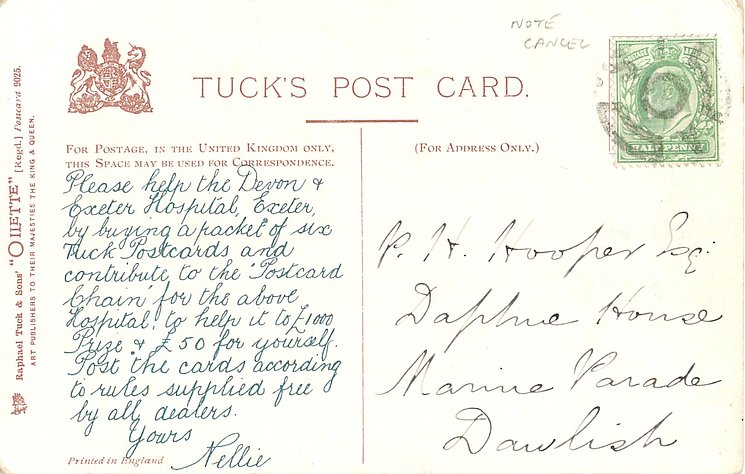 NOTE
CANCEL
TUCK'S POST CARD.
HALF PENNY
FOR POSTAGE, IN THE UNITED KINGDOM ONLY,
THIS SPACE MAY BE USED FOR CORRESPONDENCE.
(FOR ADDRESS ONLY.)
Please help the Devon &
Exeter Hospital, Exeter,
by buying a packet of six
Tuck Postcards and
contribute to the 'Postcard
Chain' for the above
Hospital, to help it to £1000
Prize & £50 for yourself.
Post the cards according
to rules supplied free
by all dealers.
Yours
Nellie
P. H. Hooper Esq.
Daphne House
Marine Parade
Dawlish
Printed in England
Raphael Tuck & Sons' "OILETTE" [Regd.] Postcard 9025.
ART PUBLISHERS TO THEIR MAJESTIES THE KING & QUEEN.